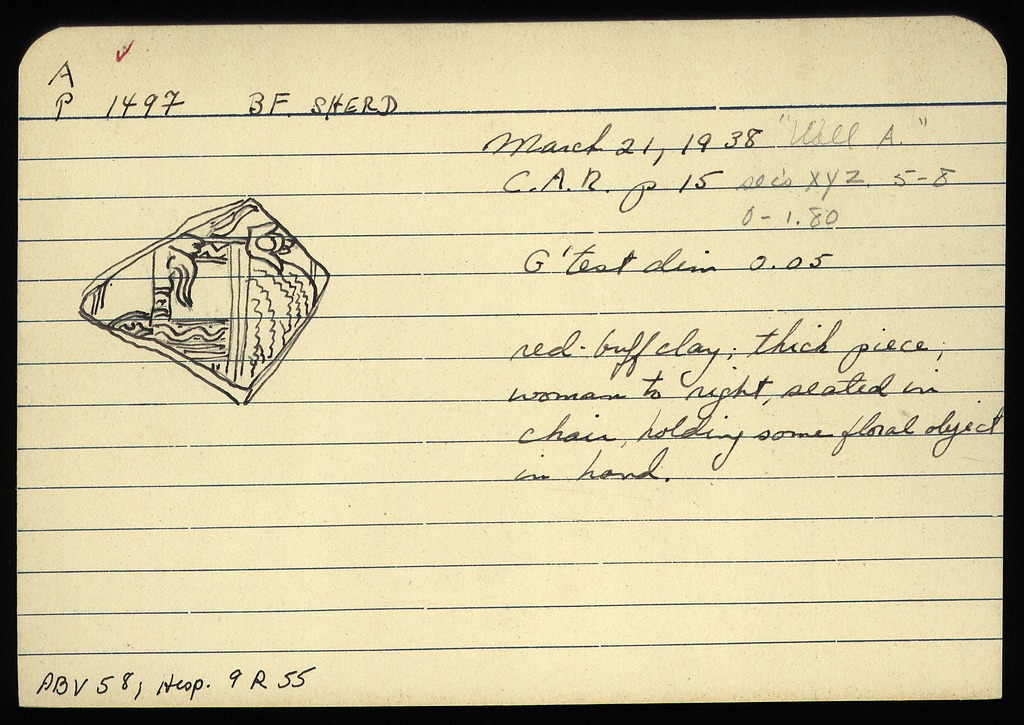 A
P 1497 BF. SHERD
March 21, 1938 "Well A."
C.A.R. p 15 sec's XYZ. 5-8
0-1.80
G'test dim 0.05
red-buff clay; thick piece;
woman to right, seated in
chair, holding some floral object
in hand.
ABV 58, Hesp. 9 R 55